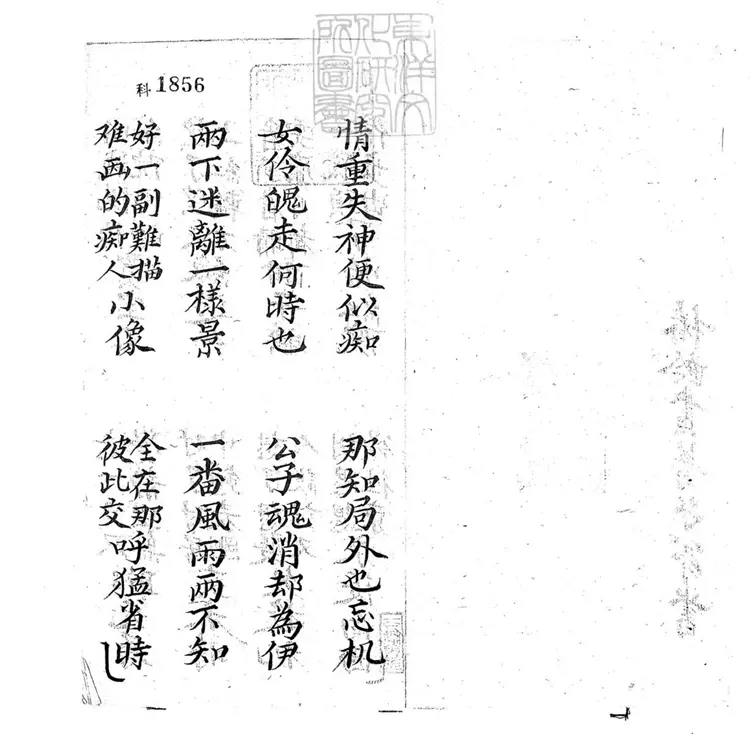 東洋文
化研究
所圖書
科1856
情重失神便似痴
那知局外也忘机
女伶魄走何時也
公子魂消却為伊
兩下迷離一樣景
一畨風雨兩不知
好一副難描
难画的痴人
小像
全在那
彼此交
呼猛省時